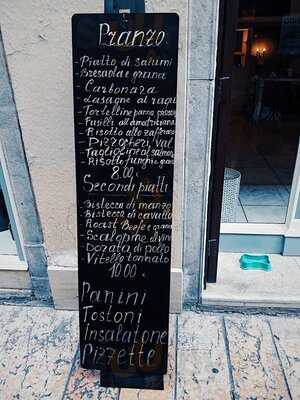 Pranzo
- Piatto di salumi
- Bresaola e grana
- Carbonara
- Lasagne al ragù
- Tortelline panna
- Fusilli all'amatriciana
- Risotto allo zafferano
- Pizzocheri Val
- Taglioline al salmone
- Risotto funghi e grana
8.00
Secondi piatti
- Bistecca di manzo
- Bistecca di cavallo
- Roast Beef e grana
- Scalopine al vino
- Dorata di pollo
- Vitello tonnato
10.00
Panini
Tostoni
Insalatone
Pizzette